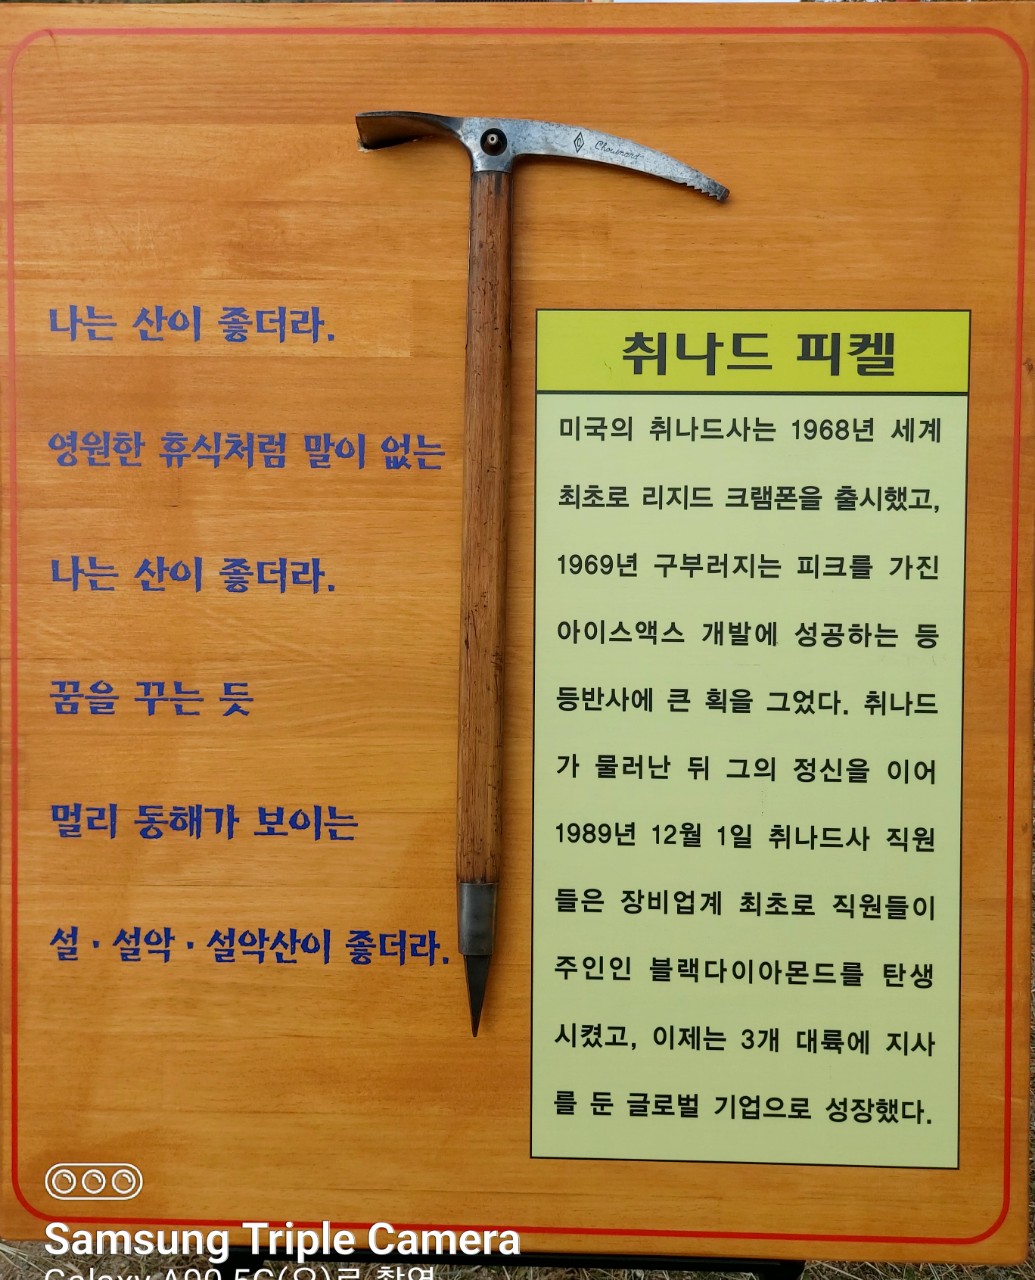 Chouinard
나는 산이 좋더라.
영원한 휴식처럼 말이 없는
나는 산이 좋더라.
꿈을 꾸는 듯
멀리 동해가 보이는
설·설악·설악산이 좋더라.
취나드 피켈
미국의 취나드사는 1968년 세계
최초로 리지드 크램폰을 출시했고,
1969년 구부러지는 피크를 가진
아이스액스 개발에 성공하는 등
등반사에 큰 획을 그었다. 취나드
가 물러난 뒤 그의 정신을 이어
1989년 12월 1일 취나드사 직원
들은 장비업계 최초로 직원들이
주인인 블랙다이아몬드를 탄생
시켰고, 이제는 3개 대륙에 지사
를 둔 글로벌 기업으로 성장했다.
Samsung Triple Camera